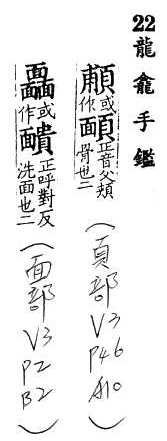 22 龍龕手鑑
或作正音父頰骨也二（頁部 V3 P46 A10）
或作靧正呼對反洗面也二（面部 V3 P2 B2）